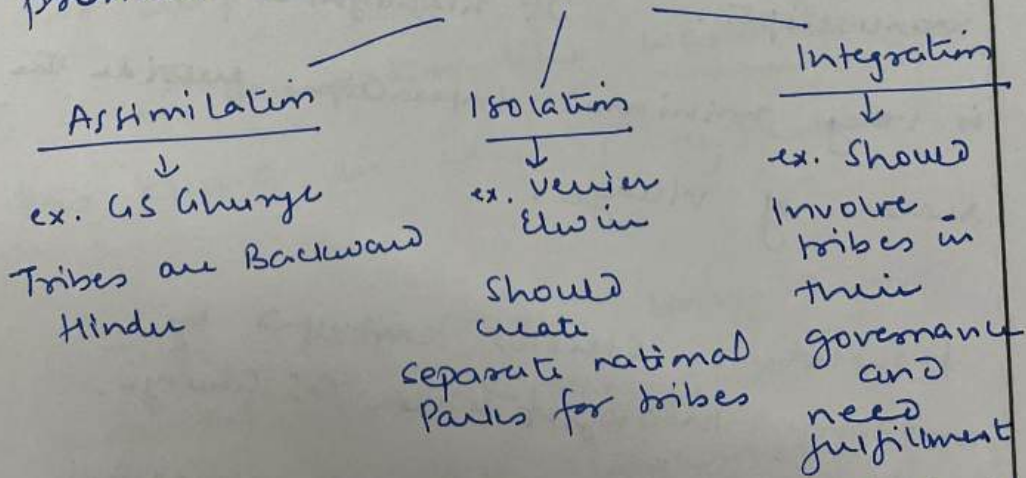 Assimilation
↓
ex. GS Ghurye
Tribes are Backward
Hindu
Isolation
↓
ex. Verrier
Elwin
Should
create
separate national
Parks for tribes
Integration
↓
ex. Should
Involve
tribes in
their
governance
and
need
fulfillment